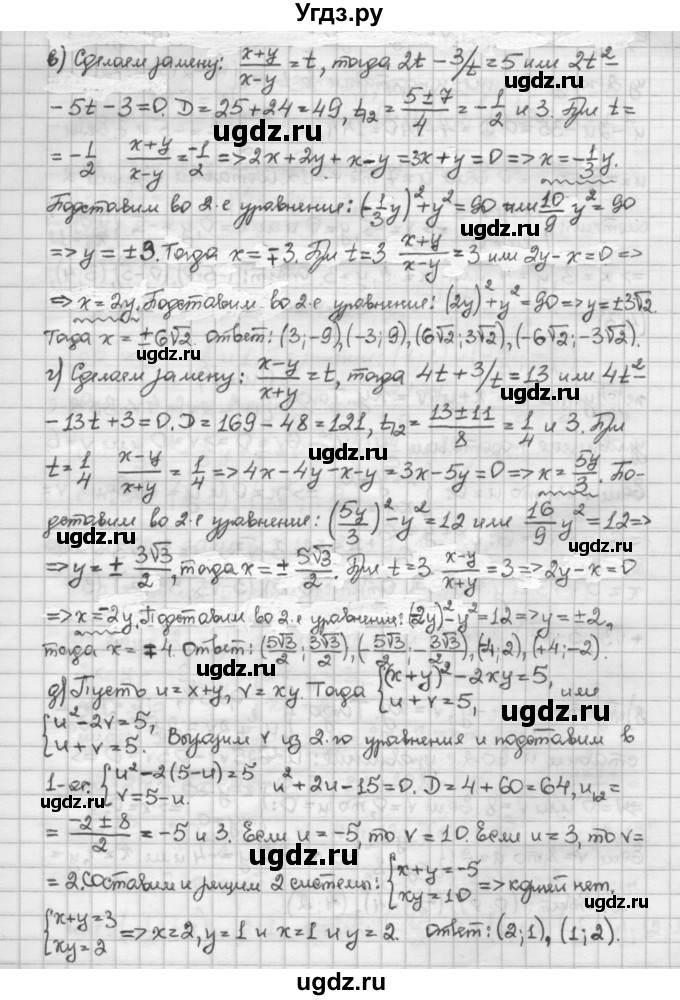 Угдз.ру
в) Сделаем замену: (x+y)/(x-y) = t, тогда 2t - 3/t = 5 или 2t² -
- 5t - 3 = 0. D = 25 + 24 = 49, t₁₂ = (5 ± 7)/4 = -1/2 и 3. При t =
uqdz.ru uqdz.ru
= -1/2 (x+y)/(x-y) = -1/2 => 2x + 2y + x - y = 3x + y = 0 => x = -1/3 y.
Подставим во 2-е уравнение: (-1/3 y)² + y² = 90 или 10/9 y² = 90
uqdz.ru
=> y = ±9. Тогда x = ∓3. При t = 3 (x+y)/(x-y) = 3 или 2y - x = 0 =>
uqdz.ru
=> x = 2y. Подставим во 2-е уравнение: (2y)² + y² = 90 => y = ±3√2
Тогда x = ±6√2. Ответ: (3; -9), (-3; 9), (6√2; 3√2), (-6√2; -3√2).
uqdz.ru uqdz.ru
г) Сделаем замену: (x-y)/(x+y) = t, тогда 4t + 3/t = 13 или 4t² -
- 13t + 3 = 0. D = 169 - 48 = 121, t₁₂ = (13 ± 11)/8 = 1/4 и 3. При
uqdz.ru
t = 1/4 (x-y)/(x+y) = 1/4 => 4x - 4y - x - y = 3x - 5y = 0 => x = 5y/3. По-
дставим во 2-е уравнение: (5y/3)² - y² = 12 или 16/9 y² = 12 =>
uqdz.ru uqdz.ru
=> y = ± 3√3/2, тогда x = ± 5√3/2. При t = 3 (x-y)/(x+y) = 3 => 2y - x = 0
uqdz.ru
=> x = -2y. Подставим во 2-е уравнение: (-2y)² - y² = 12 => y = ±2,
тогда x = ∓4. Ответ: (5√3/2; 3√3/2), (-5√3/2; -3√3/2), (-4; 2), (+4; -2).
uqdz.ru uqdz.ru
д) Пусть u = x+y, v = xy. Тогда {(x+y)² - 2xy = 5, u + v = 5, или
{u² - 2v = 5, u + v = 5. Выразим v из 2-го уравнения и подставим в
uqdz.ru
1-ое: {u² - 2(5-u) = 5 v = 5-u. u² + 2u - 15 = 0. D = 4 + 60 = 64, u₁₂ =
uqdz.ru uqdz.ru
= (-2 ± 8)/2 = -5 и 3. Если u = -5, то v = 10. Если u = 3, то v =
uqdz.ru
= 2. Составим и решим 2 системы: {x+y = -5 xy = 10 => корней нет.
{x+y = 3 xy = 2 => x = 2, y = 1 и x = 1 и y = 2. Ответ: (2; 1), (1; 2).
uqdz.ru uqdz.ru